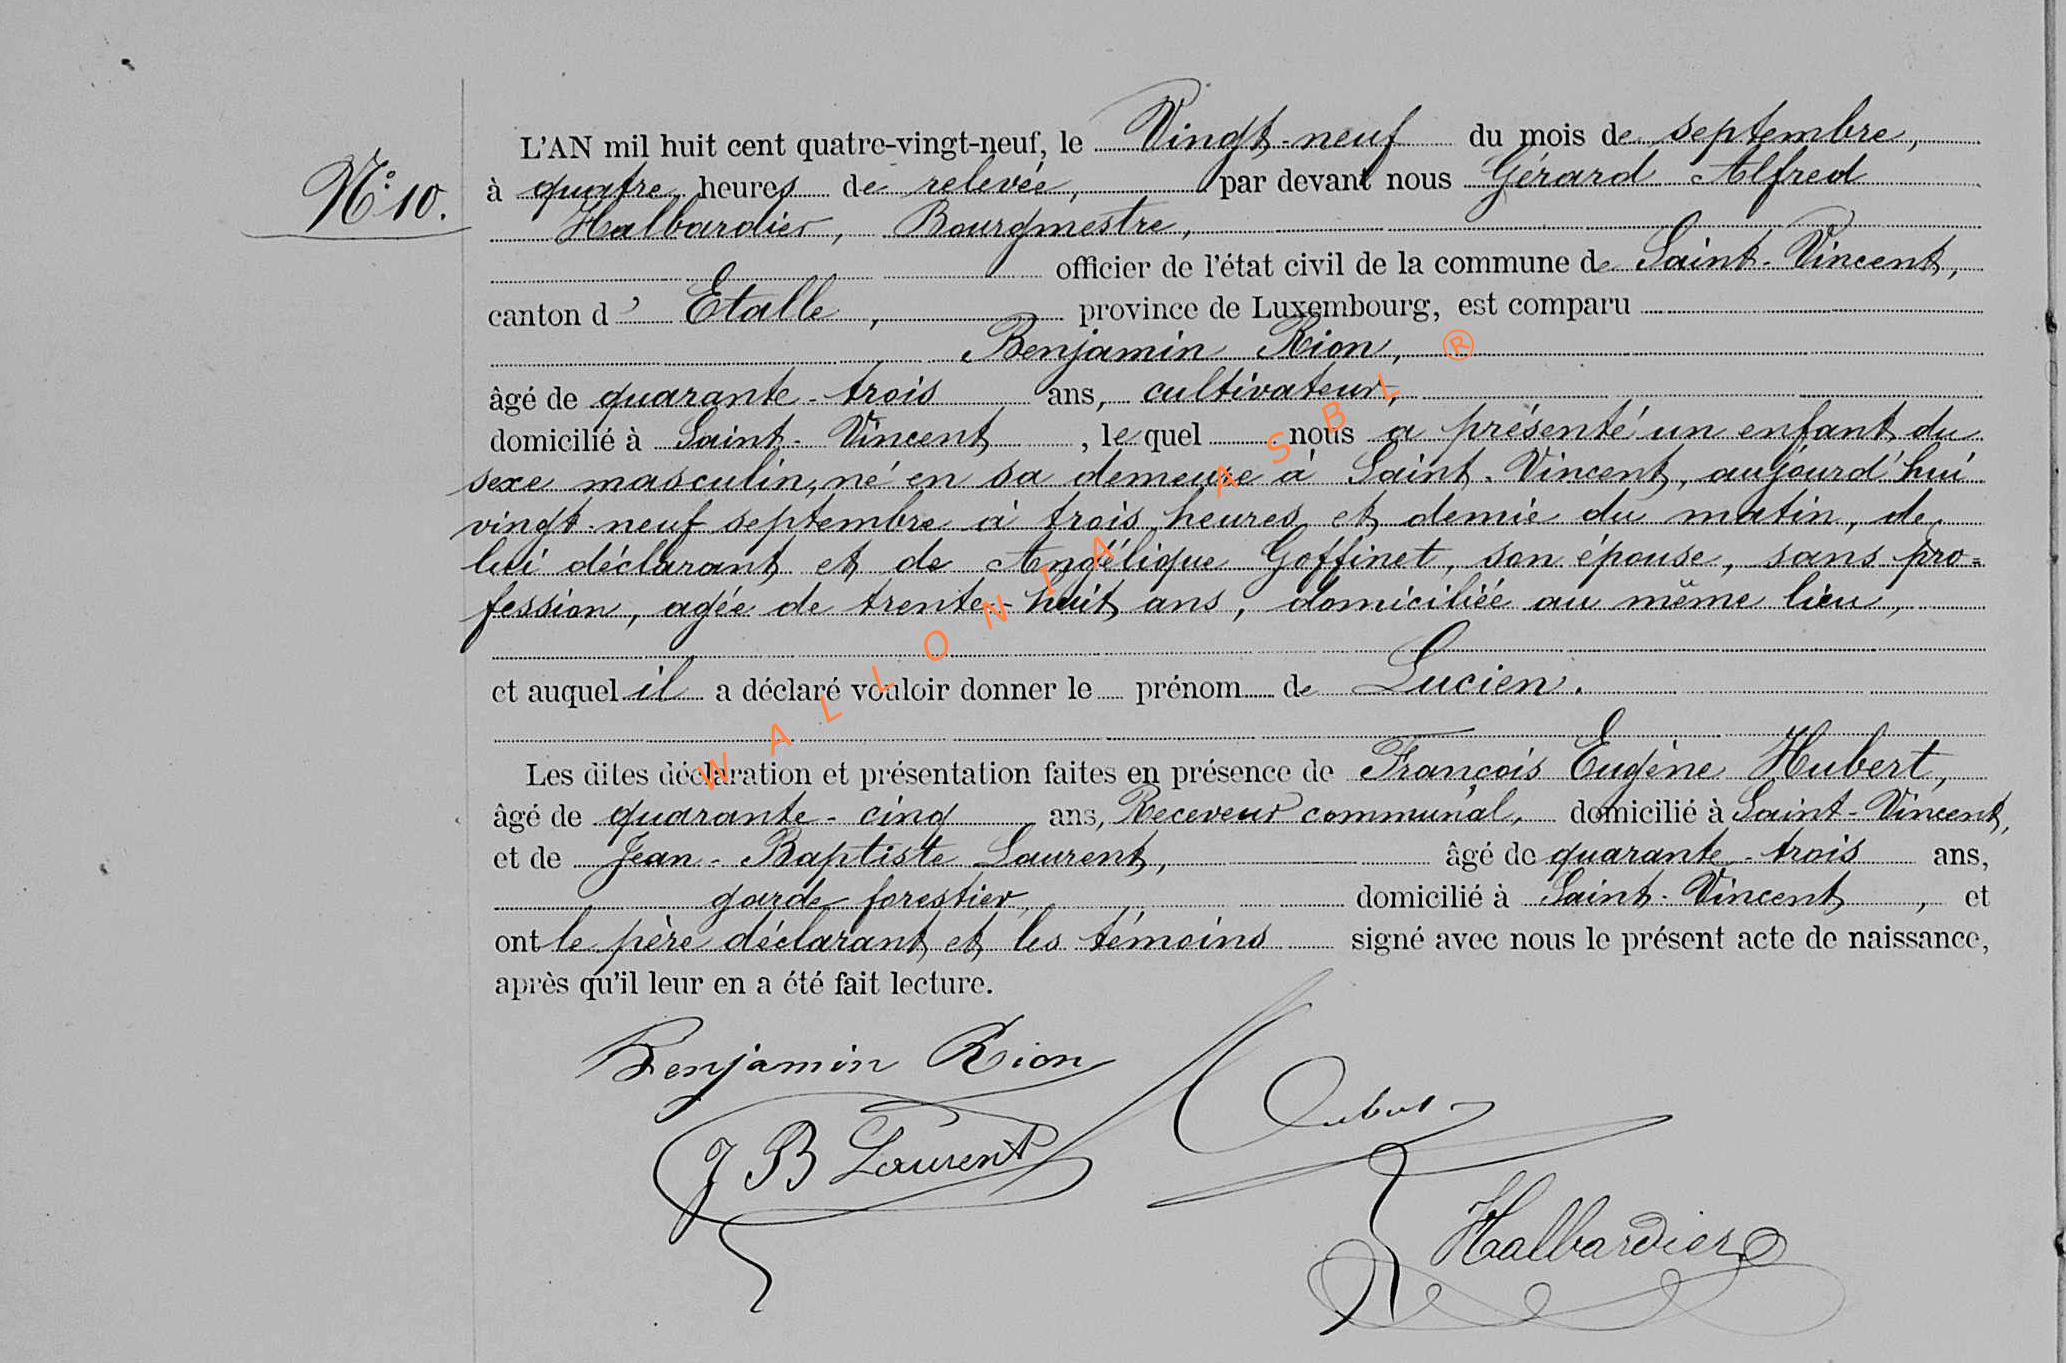 N° 10.
L'AN mil huit cent quatre-vingt-neuf, le Vingt-neuf du mois de septembre,
à quatre heures de relevée, par devant nous Gérard Alfred
Halbardier, Bourgmestre,
officier de l'état civil de la commune de Saint-Vincent,
canton d' Etalle, province de Luxembourg, est comparu
Benjamin Rion, ®
âgé de quarante-trois ans, cultivateur,
domicilié à Saint-Vincent, lequel nous a présenté un enfant du
sexe masculin, né en sa demeure à Saint-Vincent, aujourd'hui
vingt-neuf septembre à trois heures et demie du matin, de
lui déclarant et de Angélique Goffinet, son épouse, sans pro=
fession, agée de trente-huit ans, domiciliée au même lieu,
et auquel il a déclaré vouloir donner le prénom de Lucien.
Les dites déclaration et présentation faites en présence de François Eugène Hubert,
âgé de quarante-cinq ans, Receveur communal, domicilié à Saint-Vincent,
et de Jean-Baptiste Laurent, âgé de quarante-trois ans,
garde forestier, domicilié à Saint-Vincent, et
ont le père déclarant et les témoins signé avec nous le présent acte de naissance,
après qu'il leur en a été fait lecture.
Benjamin Rion
Hubert
J B Laurent
Halbardier
WALLONIA ASBL